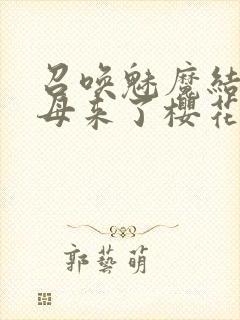 召唤魅魔结
母来了樱花
郭藝萌